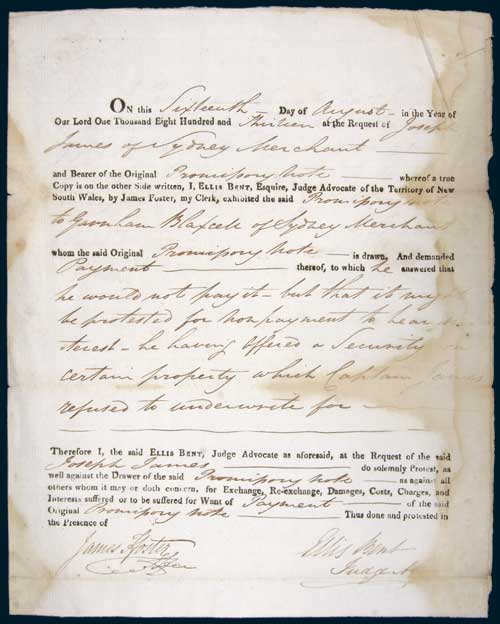 ON this Sixteenth Day of August in the Year of
Our Lord One Thousand Eight Hundred and Thirteen at the Request of Joseph
James of Sydney Merchant
and Bearer of the Original Promissory Note whereof a true
Copy is on the other Side written, I, ELLIS BENT, Esquire, Judge Advocate of the Territory of New
South Wales, by James Foster, my Clerk, exhibited the said Promissory
to Garnham Blaxcell of Sydney Merchant
whom the said Original Promissory Note is drawn, And demanded
Payment thereof, to which he answered that
he would not pay it – but that it
be protested for non payment to bear
terest – he having offered a Security
certain property which Captain James
refused to underwrite for –
Therefore I, the said ELLIS BENT, Judge Advocate as aforesaid, at the Request of the said
Joseph James do solemnly Protest, as
well against the Drawer of the said Promissory Note as against all
others whom it may or doth concern, for Exchange, Re-exchange, Damages, Costs, Charges, and
Interests suffered or to be suffered for Want of Payment of the said
Original Promissory Note Thus done and protested in
the Presence of
James Foster Ellis Bent
Judge